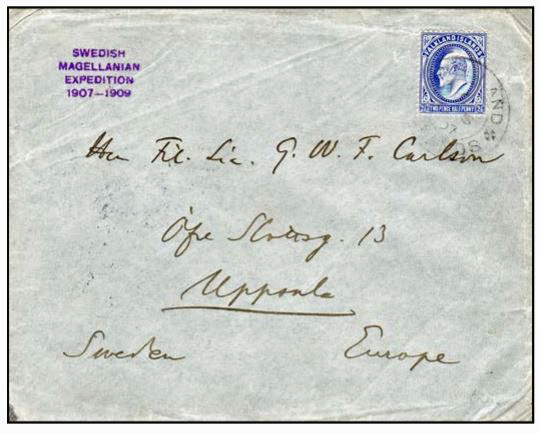 SWEDISH
MAGELLANIAN
EXPEDITION
1907—1909
FALKLAND ISLANDS
TWO PENCE HALFPENNY
Herr Fil. Lic. G. W. F. Carlson
Öfre Slottsg. 13
Uppsala
Sweden Europe